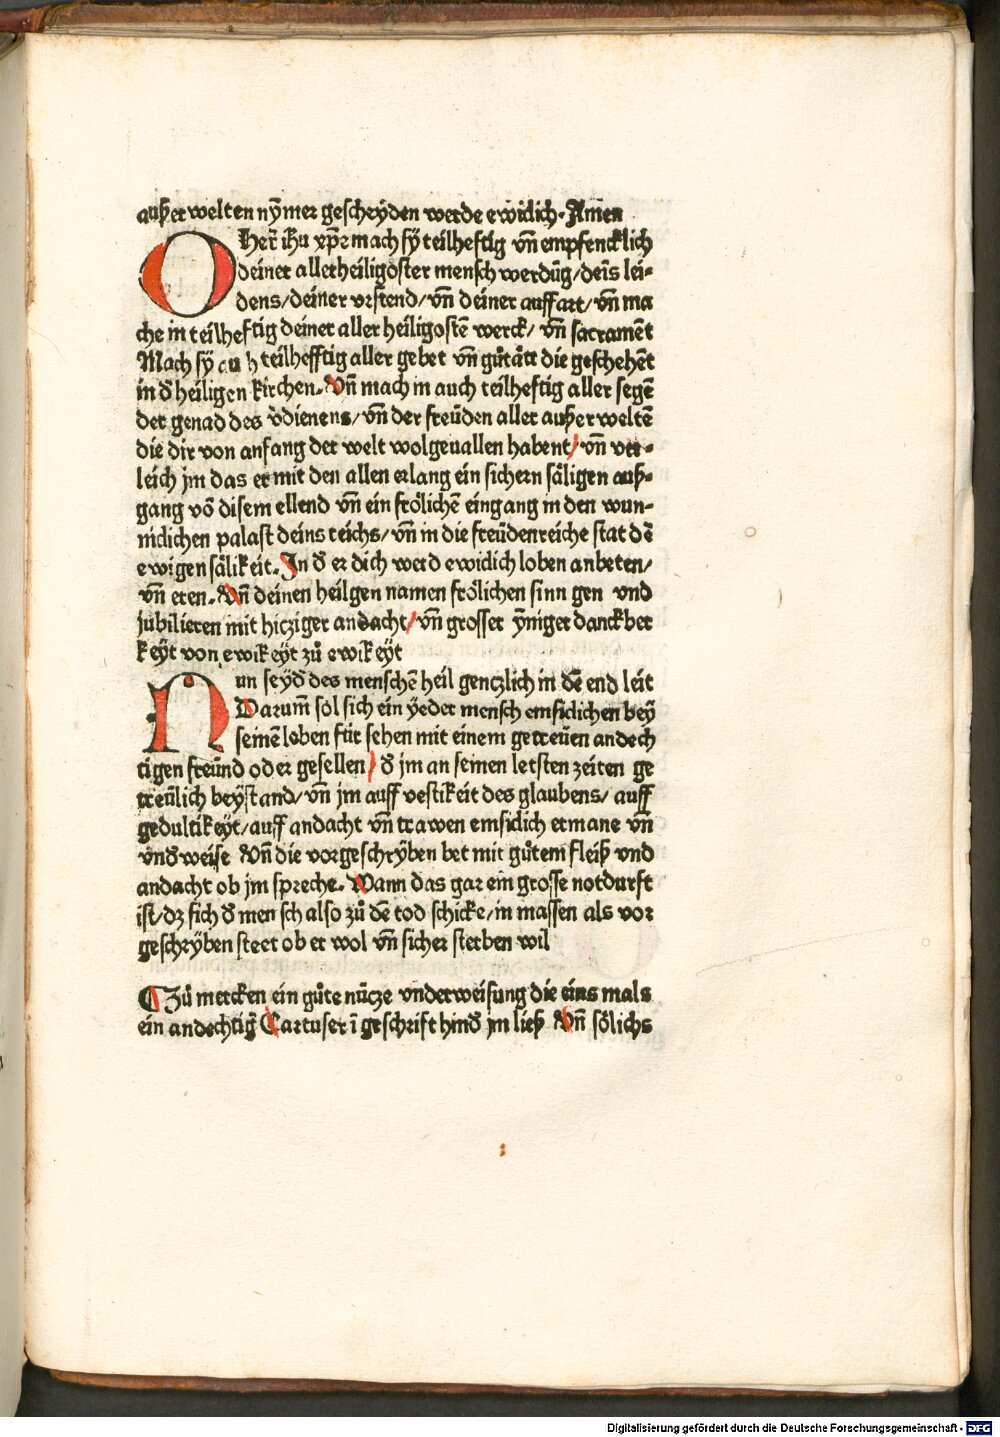 außerwelten nȳmer gescheyden werde ewiclich. Amen
O Herr̄ ihū xp̄e mach sy̆ teilheftig vn̄ empfencklich
deiner allerheiligöster mensch werdūg/deīs lei-
dens/deiner vrstend/vn̄ deiner auffart/vn̄ ma
che in teilheftig deiner aller heiligostē werck/ vn̄ sacramēt
Mach sy̆ auch teilhefftig aller gebet vn̄ gůtätt die geschehēt
in d̄ heiligen kirchen. Vn̄ mach in auch teilheftig aller segē
der genad des v̄dienens/vn̄ der freüden aller außerweltē
die dir von anfang der welt wolgeuallen habent/vn̄ ver-
leich jm das er mit den allen erlang ein sichern säligen auß-
gang vō disem ellend vn̄ ein frölichē eingang in den wun-
niclichen palast deins reichs/vn̄ in die freüdenreiche stat dē
ewigen sälikeit. In d̄ er dich werd ewiclich loben anbeten/
vn̄ eren. Vn̄ deinen heilgen namen frölichen sinngen vnd
jubilieren mit hicziger andacht/vn̄ grosser ÿniger danckber
keÿt von ewikeÿt zů ewikeÿt
Nun seÿd̄ des menschē heil genczlich in dē end leit
Darum̄ sol sich ein ÿeder mensch emsiclichen beÿ
seinē leben für sehen mit einem getreüen andech
tigen freünd oder gesellen/d̄ jm an seinen letsten zeiten ge
treülich beÿstand/vn̄ jm auff vestikeit des glaubens/ auff
gedultikeÿt/auff andacht vn̄ trawen emsiclich ermane vn̄
vnd̄weise Vn̄ die vorgeschrÿben bet mit gůtem fleiß vnd
andacht ob jm spreche. Wann das gar ein grosse notdurft
ist/dz sich d̄ mensch also zů dē tod schicke/in massen als vor
geschrÿben steet ob er wol vn̄ sicher sterben wil
¶ Zů mercken ein gůte nücze vnderweisung die eins mals
ein andechtiḡ Cartuser ī geschrift hind̄ jm ließ Vn̄ sölichs
Digitalisierung gefördert durch die Deutsche Forschungsgemeinschaft - DFG